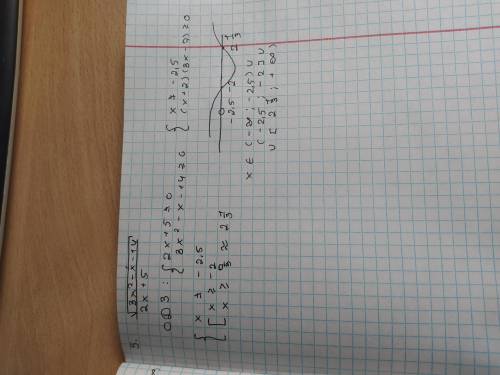 3. √(3x² - x - 14)
2x + 5
ОДЗ : { 2x + 5 ≠ 0
{ 3x² - x - 14 ≥ 0
{ x ≠ - 2,5
{ (x + 2)(3x - 7) ≥ 0
{ x ≠ - 2,5
[ x ≥ - 2
[ x ≥ 7/3 ≥ 2 1/3
- 2,5 - 2 2 1/3
x ∈ (- ∞ ; - 2,5) ∪
(- 2,5 ; - 2] ∪
∪ [2 1/3 ; + ∞)